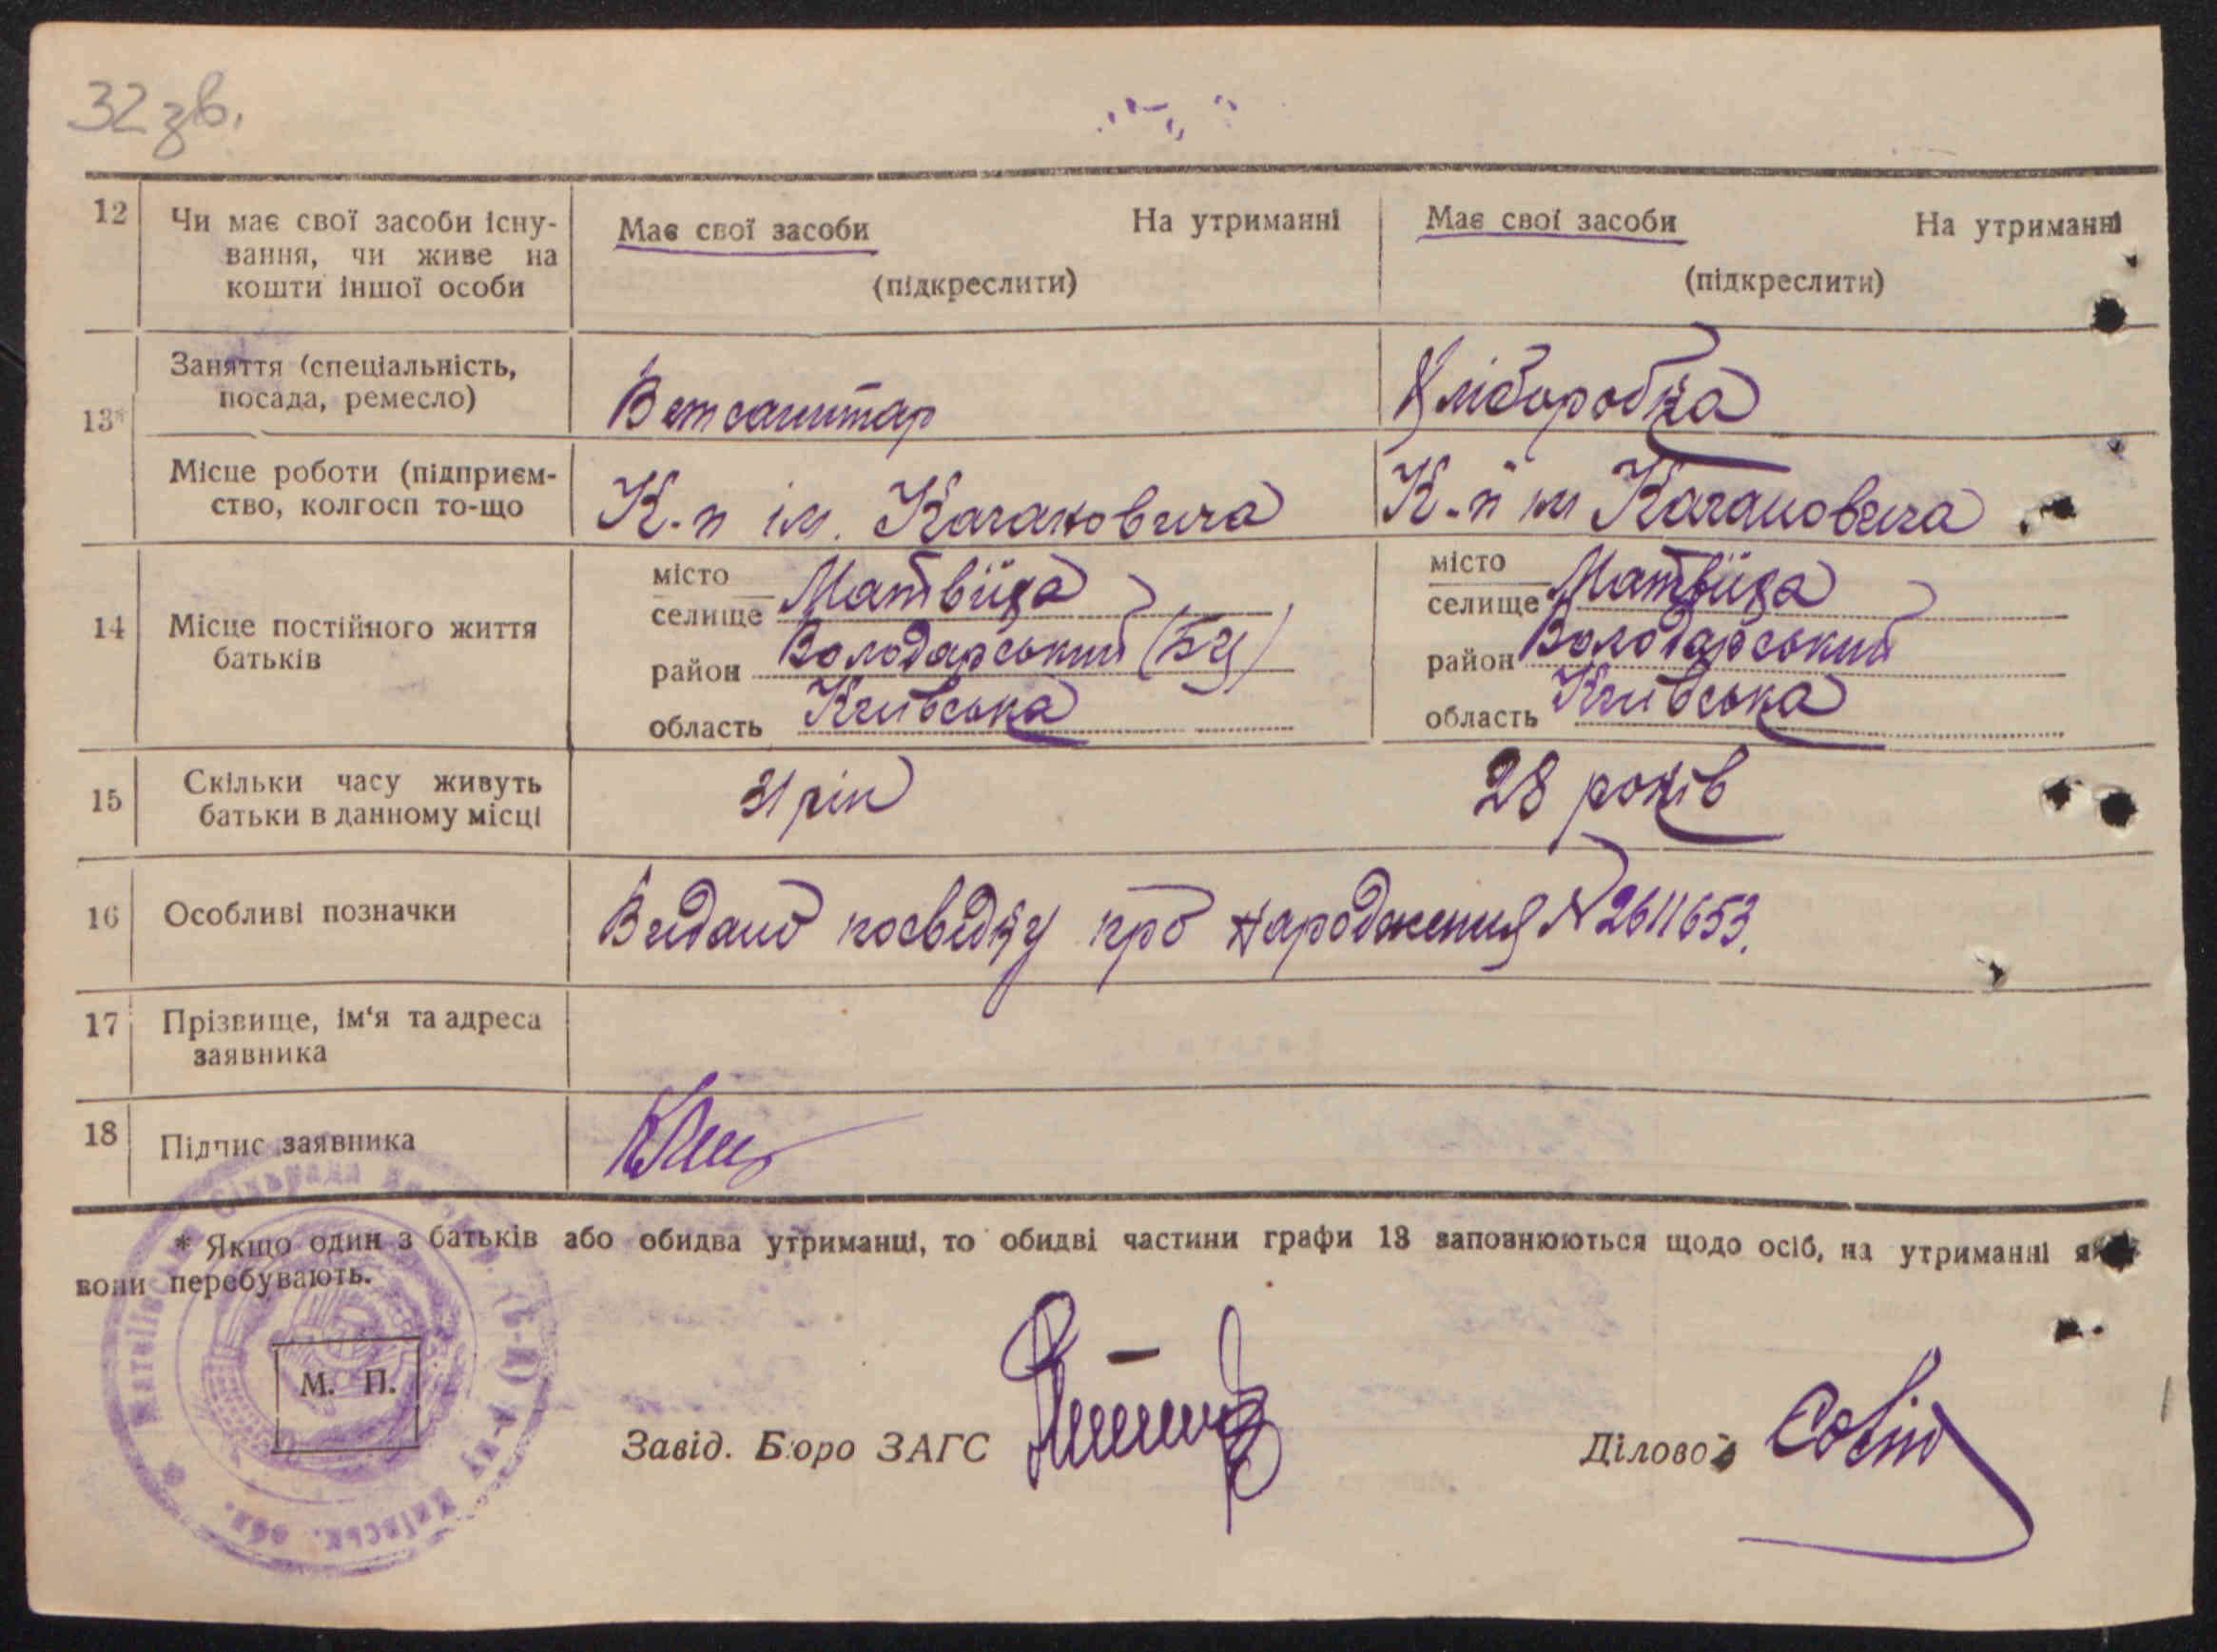 32 зв.
12 Чи має свої засоби існу- Має свої засоби На утриманні Має свої засоби На утриманні
вання, чи живе на
кошти іншої особи (підкреслити) (підкреслити)
13* Заняття (спеціальність,
посада, ремесло) Ветсанитар Хліборобка
Місце роботи (підприєм-
ство, колгосп то-що К-п ім. Кагановича К-п ім Кагановича
14 Місце постійного життя
батьків
місто
селище Матвіїха
район Володарський (БЦ)
область Київська
місто
селище Матвіїха
район Володарський
область Київська
15 Скільки часу живуть
батьки в данному місці 31 рік 28 років
16 Особливі позначки Видано посвідку про народження № 2611653.
17 Прізвище, ім'я та адреса
заявника
18 Підпис заявника
* Якщо один з батьків або обидва утриманці, то обидві частини графи 13 заповнюються щодо осіб, на утриманні
вони перебувають.
М. П.
Завід. Бюро ЗАГС
Діловод